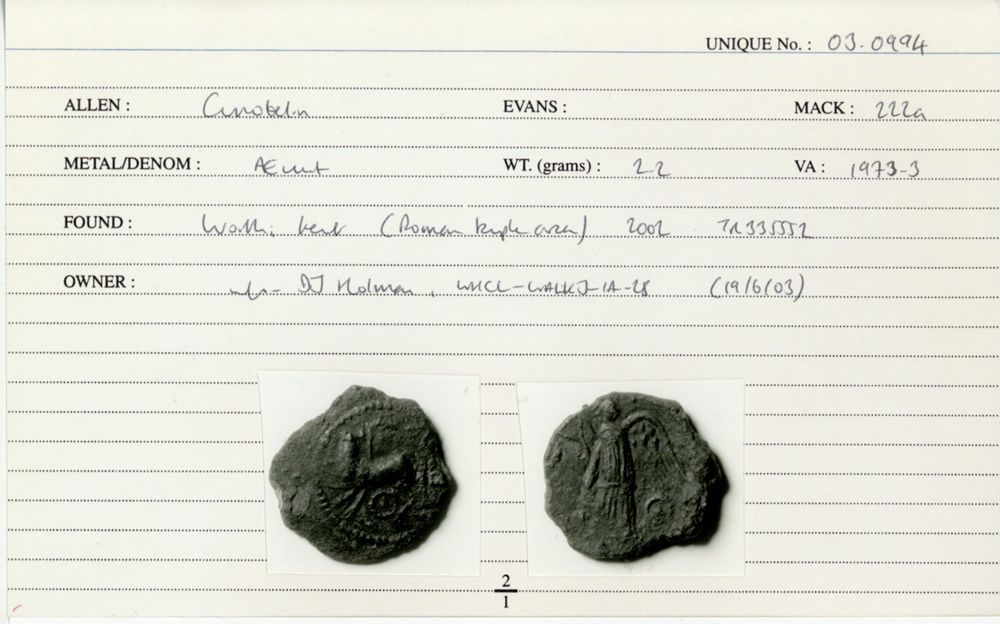 UNIQUE No. : 03.0994
ALLEN : Cunobelin EVANS : MACK : 222a
METAL/DENOM : AE unit WT. (grams) : 2.2 VA : 1973-3
FOUND : Worth, Kent (Roman temple area) 2002 TR335552
OWNER : DJ Holman, (19/6/03)
2
1